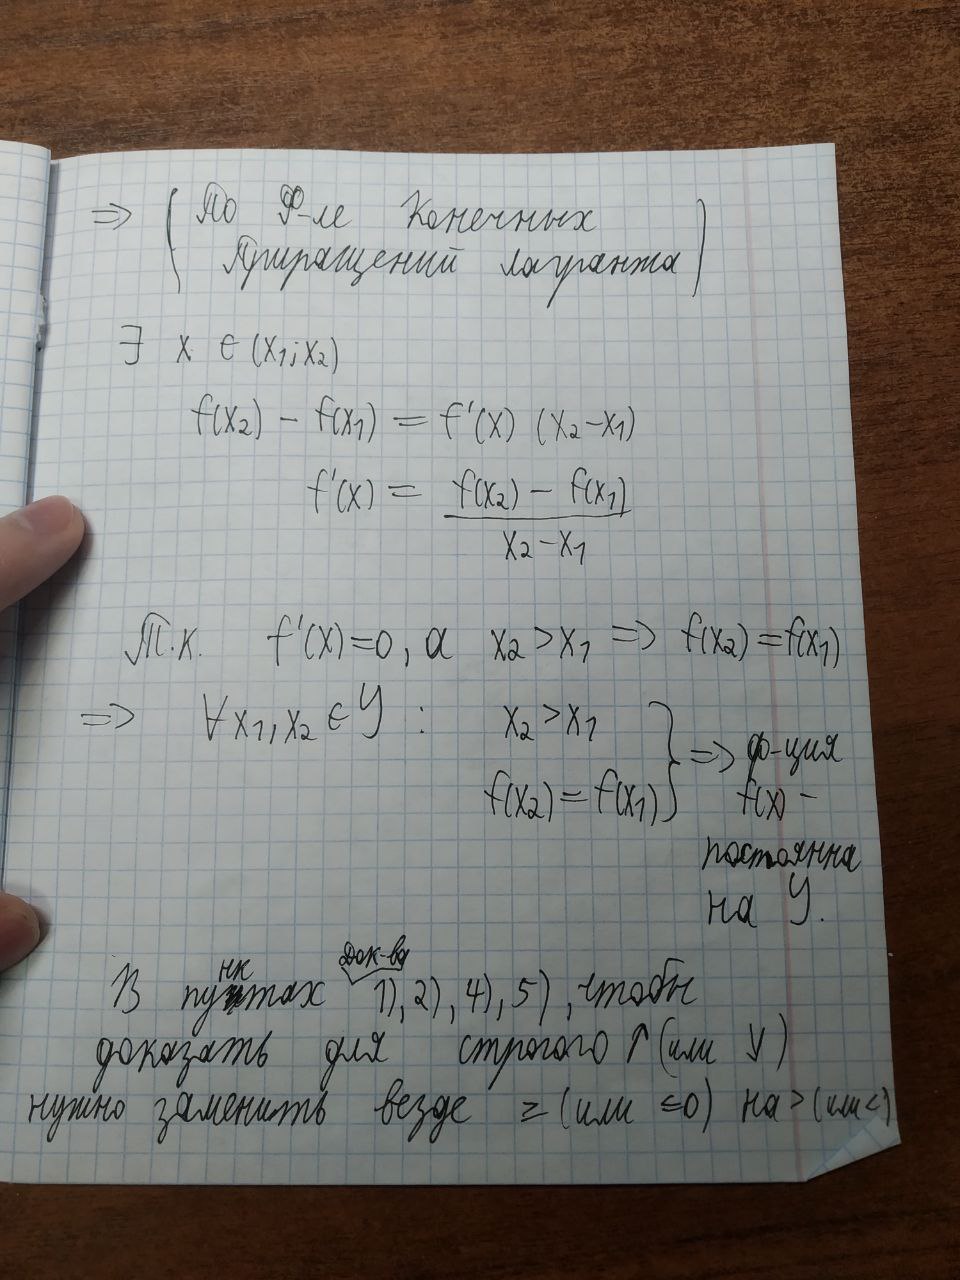 => (По Ф-ле Конечных
Приращений Лагранжа)
∃ x ∈ (x₁; x₂)
f(x₂) - f(x₁) = f'(x) (x₂-x₁)
f'(x) = f(x₂) - f(x₁)
x₂-x₁
Т.к. f'(x)=0, а x₂>x₁ => f(x₂)=f(x₁)
=> ∀x₁,x₂ ∈ У : x₂>x₁
f(x₂)=f(x₁) } => ф-ция
f(x) -
постоянна
на У.
док-ва
В пунктах 1), 2), 4), 5), чтобы
доказать для строгого ↑ (или ↓)
нужно заменить везде ≥ (или ≤0) на > (или <)